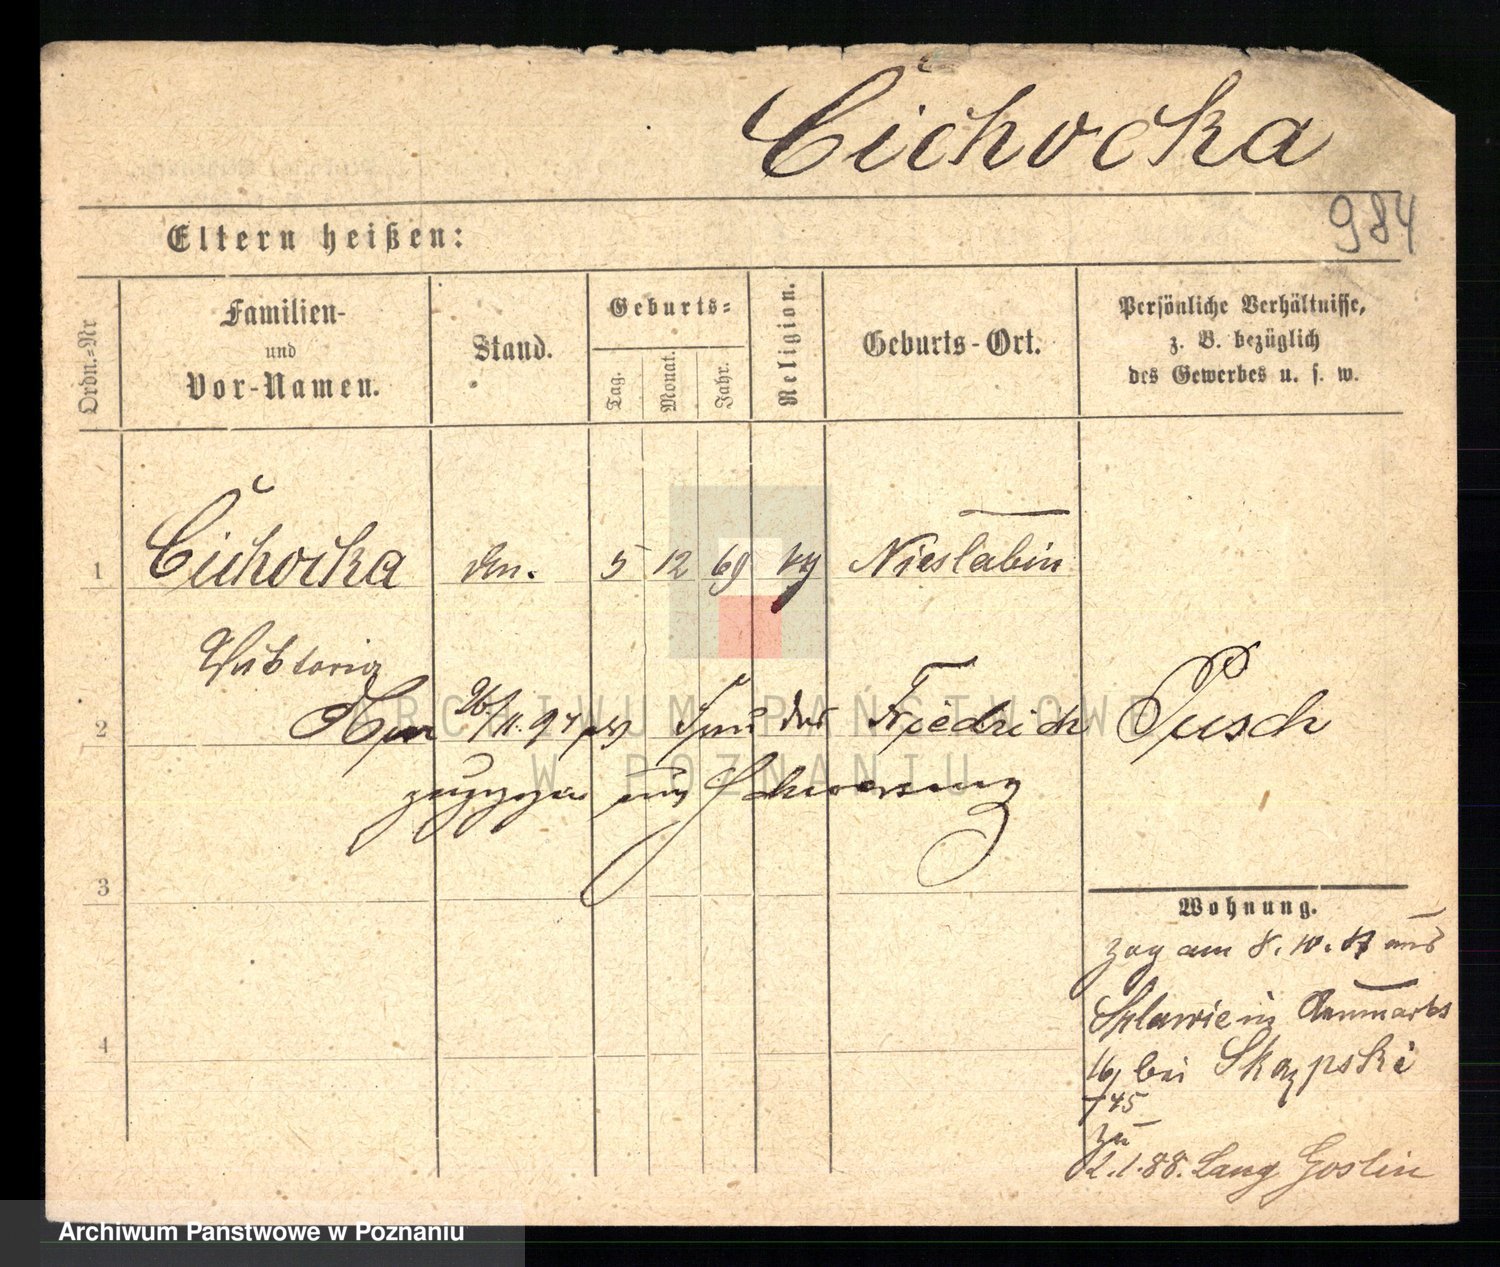 Cichocka
984
Eltern heißen:
Ordn.-Nr
Familien-
und
Vor-Namen.
Stand.
Geburts-
Tag.
Monat.
Jahr.
Religion.
Geburts-Ort.
Persönliche Verhältnisse,
z. B. bezüglich
des Gewerbes u. s. w.
1 Cichocka 5 12 69 Nieslabin
Viktoria
2 26/11. 97 Friedrich Pusch
Schwersenz
3
Wohnung.
zog am 8. 10. 87 aus
4
16 bei Skazpski
745
zu
2.1.88. Lang Goslin
ARCHIWUM PAŃSTWOWE
W POZNANIU
Archiwum Państwowe w Poznaniu